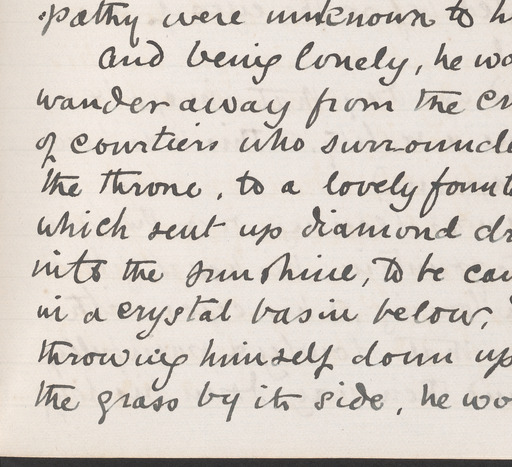 pathy were unknown to h
and being lonely, he wo
wander away from the cr
of courtiers who surrounde
the throne, to a lovely fount
which sent up diamond dr
into the sunshine, to be cau
in a crystal basin below,
throwing himself down up
the grass by its side, he wo